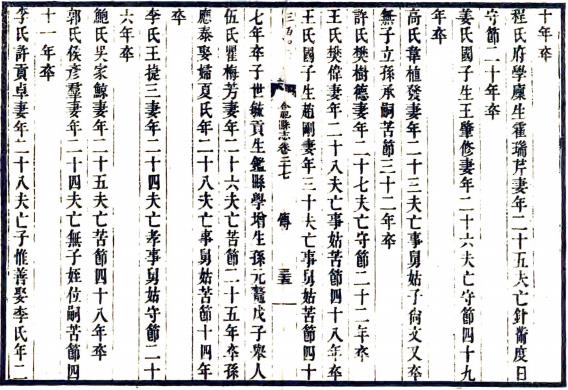 十年卒
程氏府學廩生霍瑞芹妻年二十五夫亡針黹度日
守節二十年卒
姜氏國子生王肇修妻年二十六夫亡守節四十九
年卒
高氏韋植發妻年二十三夫亡事舅姑子尙文又卒
無子立孫承嗣苦節三十二年卒
許氏樊樹德妻年二十七夫亡守節二十二年卒
王氏樊偉妻年二十八夫亡事姑苦節四十八年卒
王氏國子生趙剛妻年三十夫亡事舅姑苦節四十
合肥縣志卷二十七 傳
七年卒子世毓貢生鑑縣學增生孫元鼇戊子舉人
伍氏瞿梅芳妻年二十六夫亡苦節二十五年卒孫
應泰娶婦夏氏年二十八夫亡事舅姑苦節十四年
卒
李氏王捷三妻年二十四夫亡孝事舅姑守節二十
六年卒
鮑氏吳家鯨妻年二十五夫亡苦節四十八年卒
郭氏侯彥羣妻年二十四夫亡無子姪位嗣苦節四
十一年卒
李氏許貢卓妻年二十八夫亡子惟善娶李氏年二